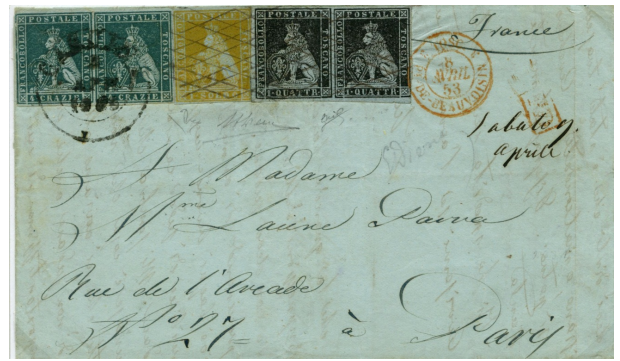 FRANCOBOLLO POSTALE TOSCANO
CRAZIE
FRANCOBOLLO POSTALE TOSCANO
CRAZIE
POSTALE
FRANCOBOLLO POSTALE TOSCANO
1 QUATTR
FRANCOBOLLO POSTALE TOSCANO
1 QUATTR
8
AVRIL
53
DE-BEAUVOISIN
France
Sabato 9.
aprile.
A Madame
Mme Laure Paiva
Rue de l'Arcade
No 27
à Paris